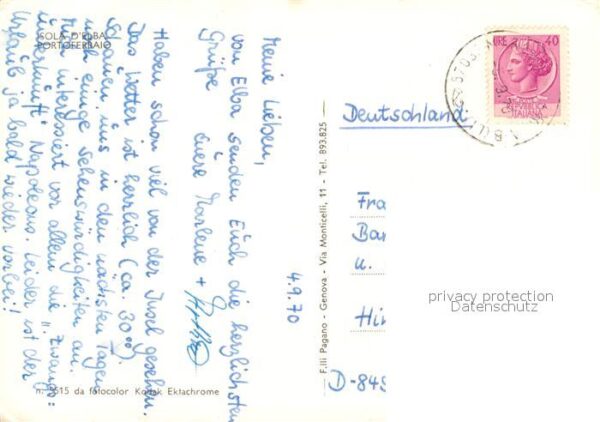 ISOLA D'ELBA
PORTOFERRAIO
4.9.70
Meine Lieben,
von Elba senden Euch die herzlichsten
Grüße Eure Marlene +
Haben schon viel von der Insel gesehen.
Das Wetter ist herrlich (ca. 30°).
Schauen uns in den nächsten Tagen
noch einige Sehenswürdigkeiten an.
Mich interessiert vor allem die "Zwangs=
unterkunft" Napoleons. Leider ist der
Urlaub ja bald wieder vorbei!
n. 5515 da fotocolor Kodak Ektachrome
F.lli Pagano - Genova - Via Monticelli, 11 - Tel. 893.825
LIRE 40
REPUBBLICA
ITALIANA
Deutschland
Fra
Bar
u.
Hir
D-845
privacy protection
Datenschutz